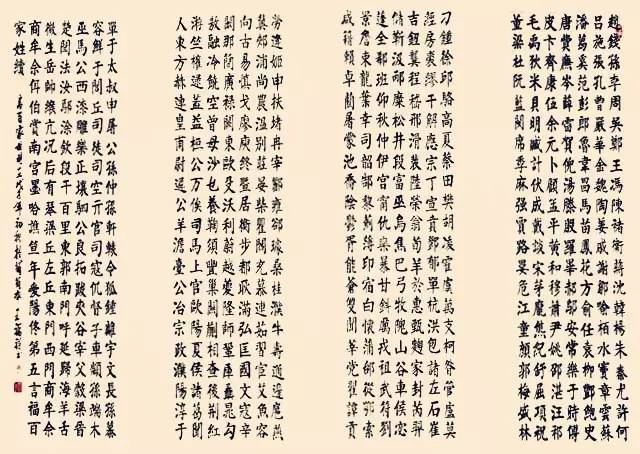 趙錢孫李周吳鄭王馮陳褚衛蔣沈韓楊朱秦尤許何
呂施張孔曹嚴華金魏陶姜戚謝鄒喻柏水竇章雲蘇
潘葛奚范彭郎魯韋昌馬苗鳳花方俞任袁柳酆鮑史
唐費廉岑薛雷賀倪湯滕殷羅畢郝鄔安常樂于時傅
皮卞齊康伍余元卜顧孟平黃和穆蕭尹姚邵湛汪祁
毛禹狄米貝明臧計伏成戴談宋茅龐熊紀舒屈項祝
董梁杜阮藍閔席季麻強賈路婁危江童顏郭梅盛林
刁鍾徐邱駱高夏蔡田樊胡凌霍虞萬支柯昝管盧莫
經房裘繆干解應宗丁宣賁鄧郁單杭洪包諸左石崔
吉鈕龔程嵇邢滑裴陸榮翁荀羊於惠甄麴家封芮羿
儲靳汲邴糜松井段富巫烏焦巴弓牧隗山谷車侯宓
蓬全郗班仰秋仲伊宮甯仇欒暴甘鈄厲戎祖武符劉
景詹束龍葉幸司韶郜黎薊薄印宿白懷蒲邰從鄂索
咸籍賴卓藺屠蒙池喬陰鬱胥能蒼雙聞莘黨翟譚貢
勞逄姬申扶堵冉宰酈雍郤璩桑桂濮牛壽通邊扈燕
冀郟浦尚農溫別莊晏柴瞿閻充慕連茹習宦艾魚容
向古易慎戈廖庾終暨居衡步都耿滿弘匡國文寇辛
闞那簡廣祿闕東歐殳沃利蔚越夔隆師鞏厙聶晁勾
敖融冷饒空曾毋沙乜養鞠須豐巢關蒯相查後荊紅
游竺權逯蓋益桓公万俟司馬上官歐陽夏侯諸葛聞
人東方赫連皇甫尉遲公羊澹臺公冶宗政濮陽淳于
單于太叔申屠公孫仲孫軒轅令狐鍾離宇文長孫慕
容鮮于閭丘司徒司空亓官司寇仉督子車顓孫端木
巫馬公西漆雕樂正壤駟公良拓跋夾谷宰父穀梁晉
楚閆法汝鄢涂欽段干百里東郭南門呼延歸海羊舌
微生岳帥緱亢況后有琴梁丘左丘東門西門商牟佘
商牟余佴伯賞南宮墨哈譙笪年愛陽佟第五言福百
家姓續